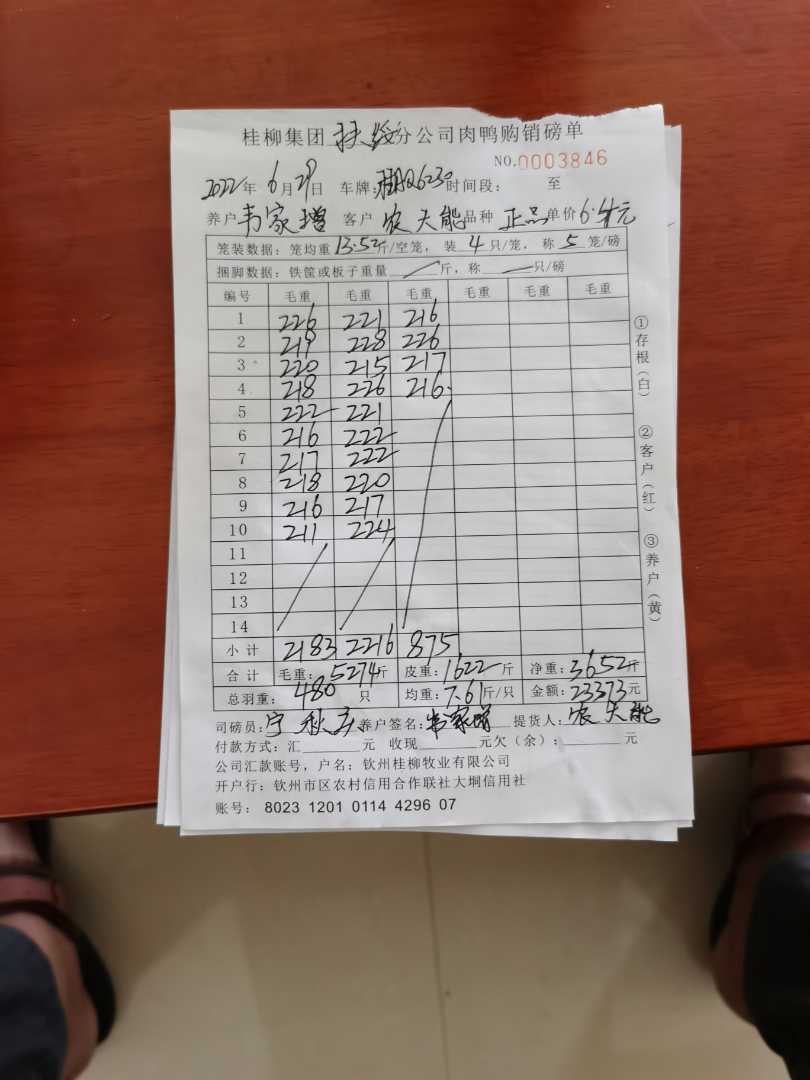 桂柳集团 扶绥分公司肉鸭购销磅单
NO.0003846
2022年 6月29日 车牌: 6230 时间段: 至
养户 韦家增 客户 农天能 品种 正品 单价 6.4元
笼装数据: 笼均重 13.52斤/空笼, 装 4 只/笼, 称 5 笼/磅
捆脚数据: 铁筐或板子重量 / 斤, 称 — 只/磅
编号 毛重 毛重 毛重 毛重 毛重 毛重
1 226 221 216
2 219 228 226
3 220 215 217
4 218 226 216
5 222 221
6 216 222
7 217 222
8 218 220
9 216 217
10 211 224
11
12
13
14
小计 2183 2216 875
合计 毛重: 5274斤 皮重: 1622斤 净重: 3652斤
总羽重: 480 只 均重: 7.61斤/只 金额: 23373元
司磅员: 宁秋 养户签名: 韦家增 提货人: 农天能
付款方式: 汇 元 收现 元欠(余): 元
公司汇款账号, 户名: 钦州桂柳牧业有限公司
开户行: 钦州市区农村信用合作联社大垌信用社
账号: 8023 1201 0114 4296 07
①存根(白)
②客户(红)
③养户(黄)